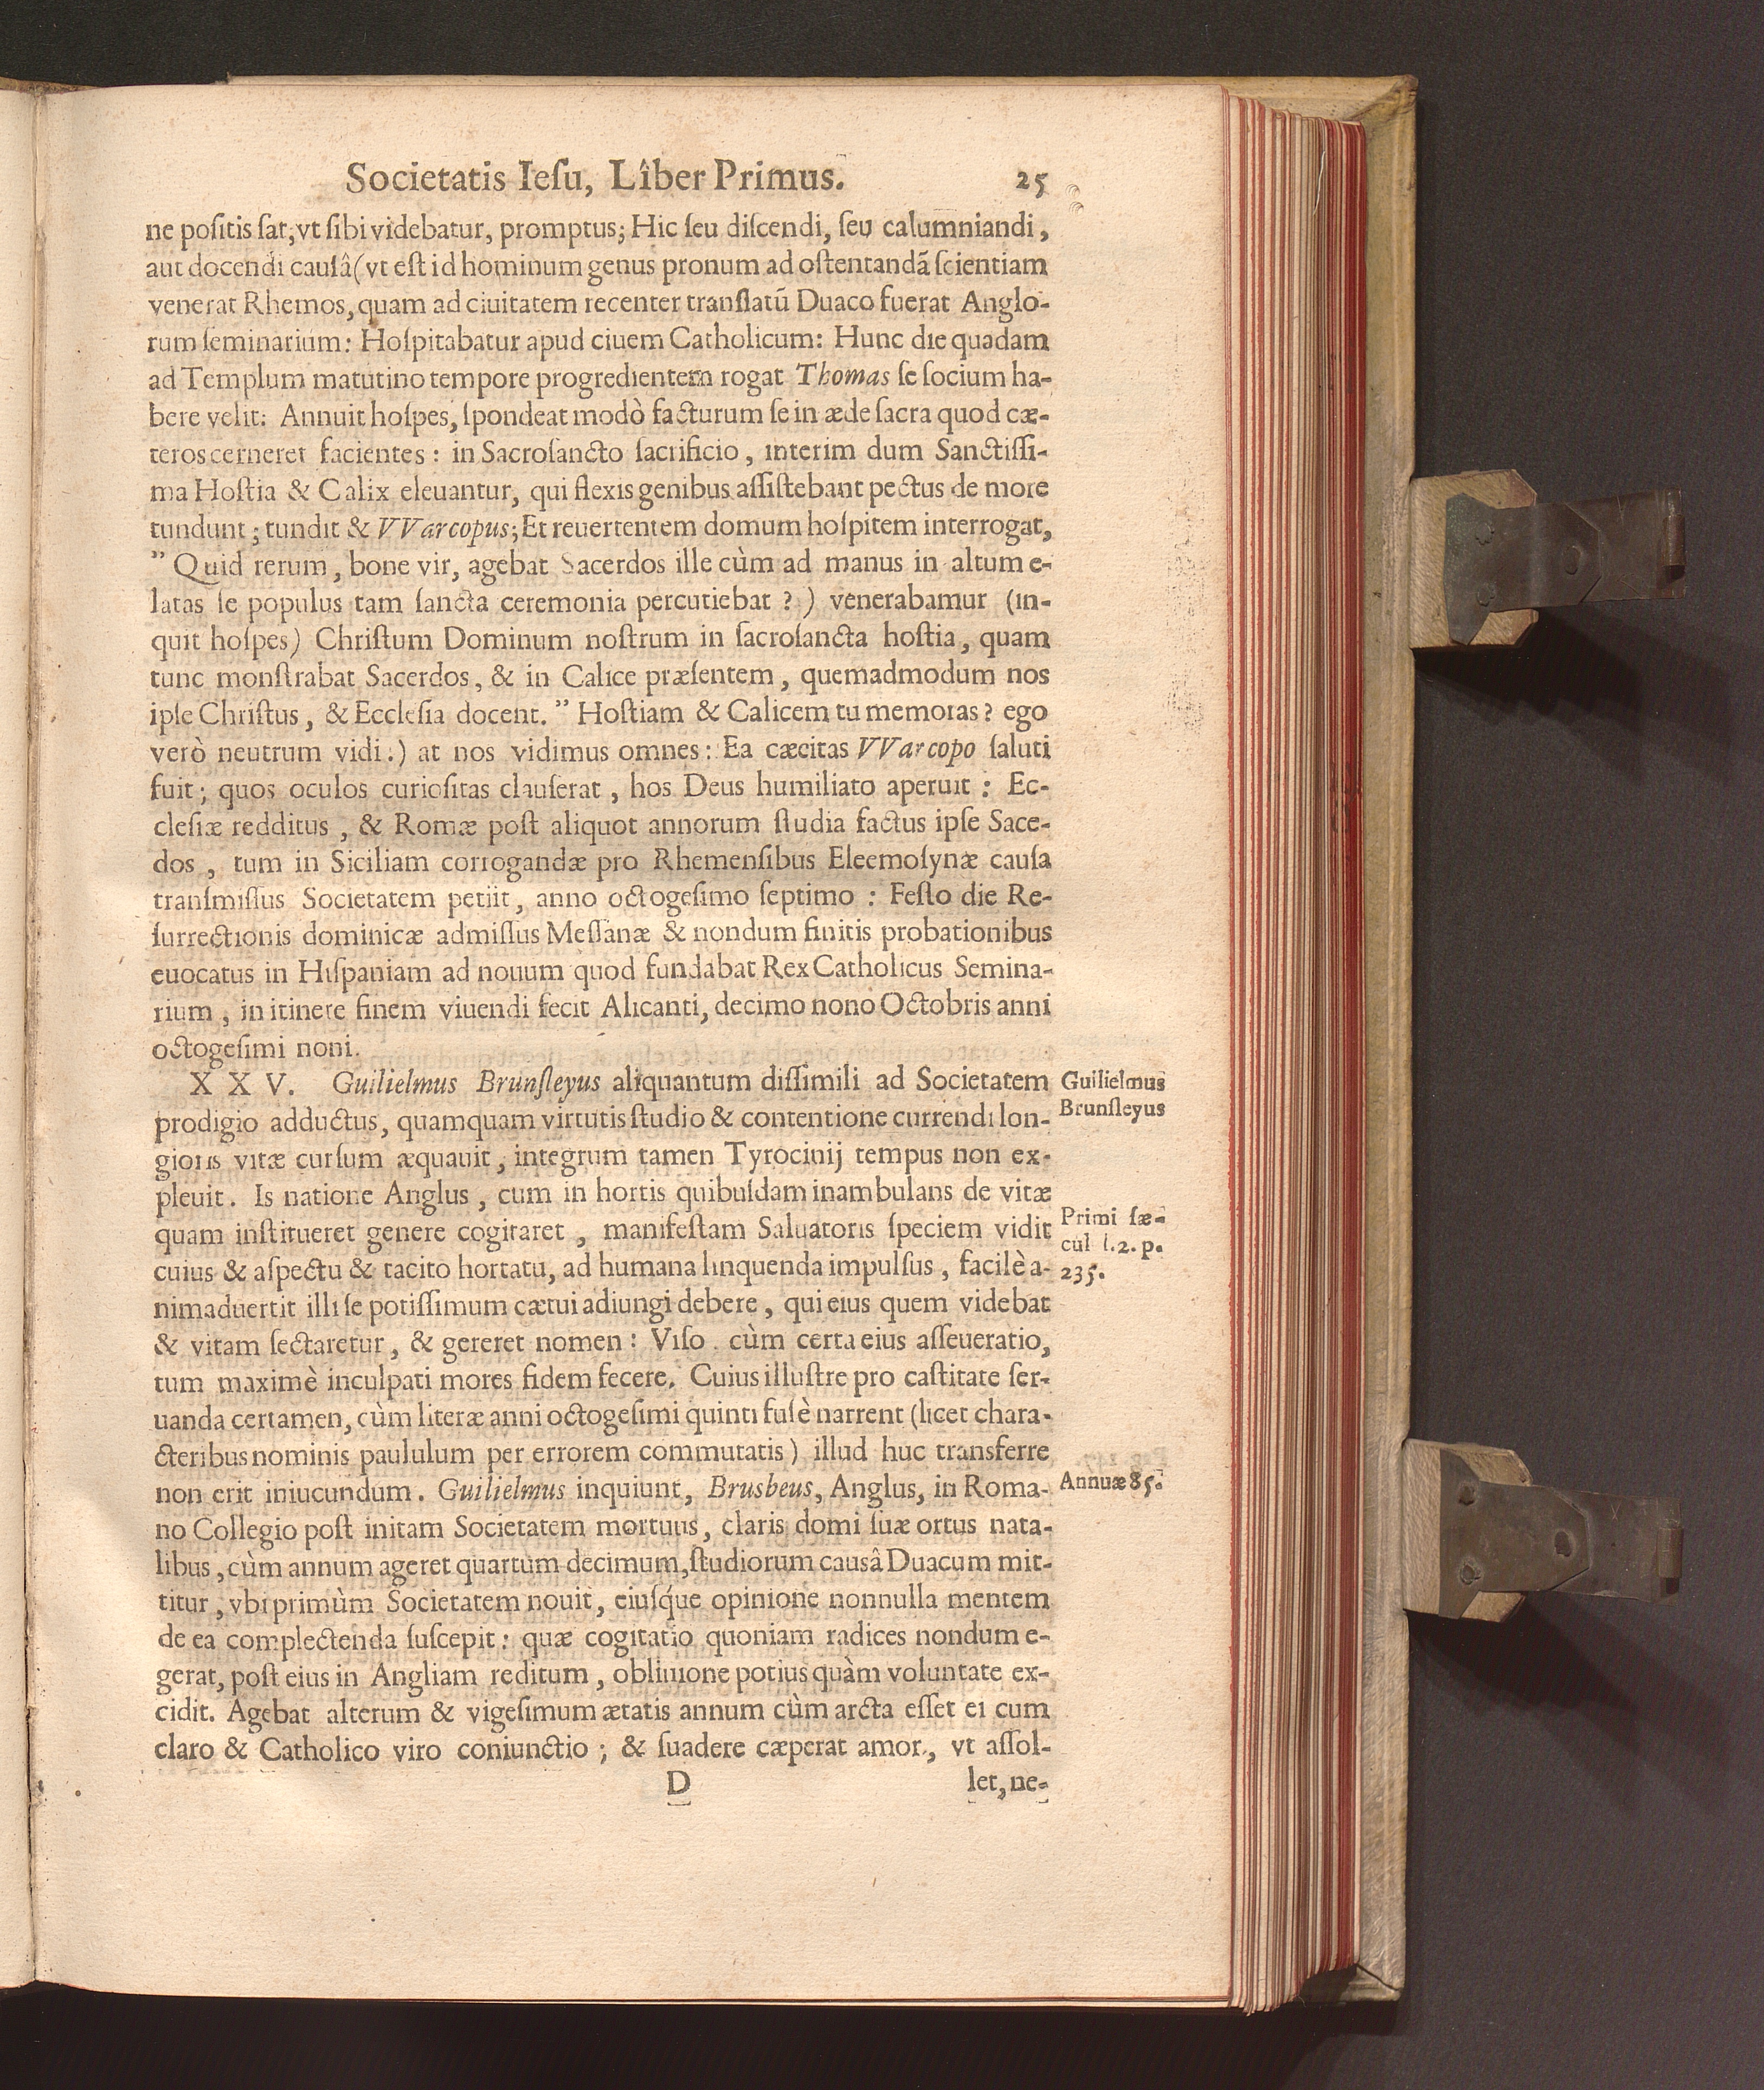 Societatis Ieſu, Lîber Primus. 25
ne poſitis ſat, vt ſibi videbatur, promptus; Hic ſeu diſcendi, ſeu calumniandi,
aut docendi cauſâ (vt eſt id hominum genus pronum ad oſtentandã ſcientiam
venerat Rhemos, quam ad ciuitatem recenter tranſlatũ Duaco fuerat Anglo-
rum ſeminarium: Hoſpitabatur apud ciuem Catholicum: Hunc die quadam
ad Templum matutino tempore progredientem rogat Thomas ſe ſocium ha-
bere velit: Annuit hoſpes, ſpondeat modò facturum ſe in æde ſacra quod cæ-
teros cerneret facientes: in Sacroſancto ſacrificio, interim dum Sanctiſſi-
ma Hoſtia & Calix eleuantur, qui flexis genibus aſſiſtebant pectus de more
tundunt; tundit & VVarcopus; Et reuertentem domum hoſpitem interrogat,
” Quid rerum, bone vir, agebat Sacerdos ille cùm ad manus in altum e-
latas ſe populus tam ſancta ceremonia percutiebat?) venerabamur (in-
quit hoſpes) Chriſtum Dominum noſtrum in ſacroſancta hoſtia, quam
tunc monſtrabat Sacerdos, & in Calice præſentem, quemadmodum nos
ipſe Chriſtus, & Eccleſia docent. ” Hoſtiam & Calicem tu memoras? ego
verò neutrum vidi.) at nos vidimus omnes: Ea cæcitas VVarcopo ſaluti
fuit; quos oculos curioſitas clauſerat, hos Deus humiliato aperuit: Ec-
cleſiæ redditus, & Romæ poſt aliquot annorum ſtudia factus ipſe Sace-
dos, tum in Siciliam corrogandæ pro Rhemenſibus Eleemoſynæ cauſa
tranſmiſſus Societatem petiit, anno octogeſimo ſeptimo: Feſto die Re-
ſurrectionis dominicæ admiſſus Meſſanæ & nondum finitis probationibus
euocatus in Hiſpaniam ad nouum quod fundabat Rex Catholicus Semina-
rium, in itinere finem viuendi fecit Alicanti, decimo nono Octobris anni
octogeſimi noni.
XXV. Guilielmus Brunſleyus aliquantum diſſimili ad Societatem
Guilielmus
Brunſleyus
prodigio adductus, quamquam virtutis ſtudio & contentione currendi lon-
gioris vitæ curſum æquauit, integrum tamen Tyrocinij tempus non ex-
pleuit. Is natione Anglus, cum in hortis quibuſdam inambulans de vitæ
quam inſtitueret genere cogitaret, manifeſtam Saluatoris ſpeciem vidit
Primi ſæ-
cul l.2. p.
235.
cuius & aſpectu & tacito hortatu, ad humana linquenda impulſus, facilè a-
nimaduertit illi ſe potiſſimum cætui adiungi debere, qui eius quem videbat
& vitam ſectaretur, & gereret nomen: Viſo cùm certa eius aſſeueratio,
tum maximè inculpati mores fidem fecere. Cuius illuſtre pro caſtitate ſer-
uanda certamen, cùm literæ anni octogeſimi quinti fuſè narrent (licet chara-
cteribus nominis paululum per errorem commutatis) illud huc transferre
non erit iniucundum. Guilielmus inquiunt, Brusbeus, Anglus, in Roma-
Annuæ 85.
no Collegio poſt initam Societatem mortuus, claris domi ſuæ ortus nata-
libus, cùm annum ageret quartum decimum, ſtudiorum causâ Duacum mit-
titur, vbi primùm Societatem nouit, eiuſq́ue opinione nonnulla mentem
de ea complectenda ſuſcepit: quæ cogitatio quoniam radices nondum e-
gerat, poſt eius in Angliam reditum, obliuione potius quàm voluntate ex-
cidit. Agebat alterum & vigeſimum ætatis annum cùm arcta eſſet ei cum
claro & Catholico viro coniunctio; & ſuadere cæperat amor, vt aſſol-
D let, ne-